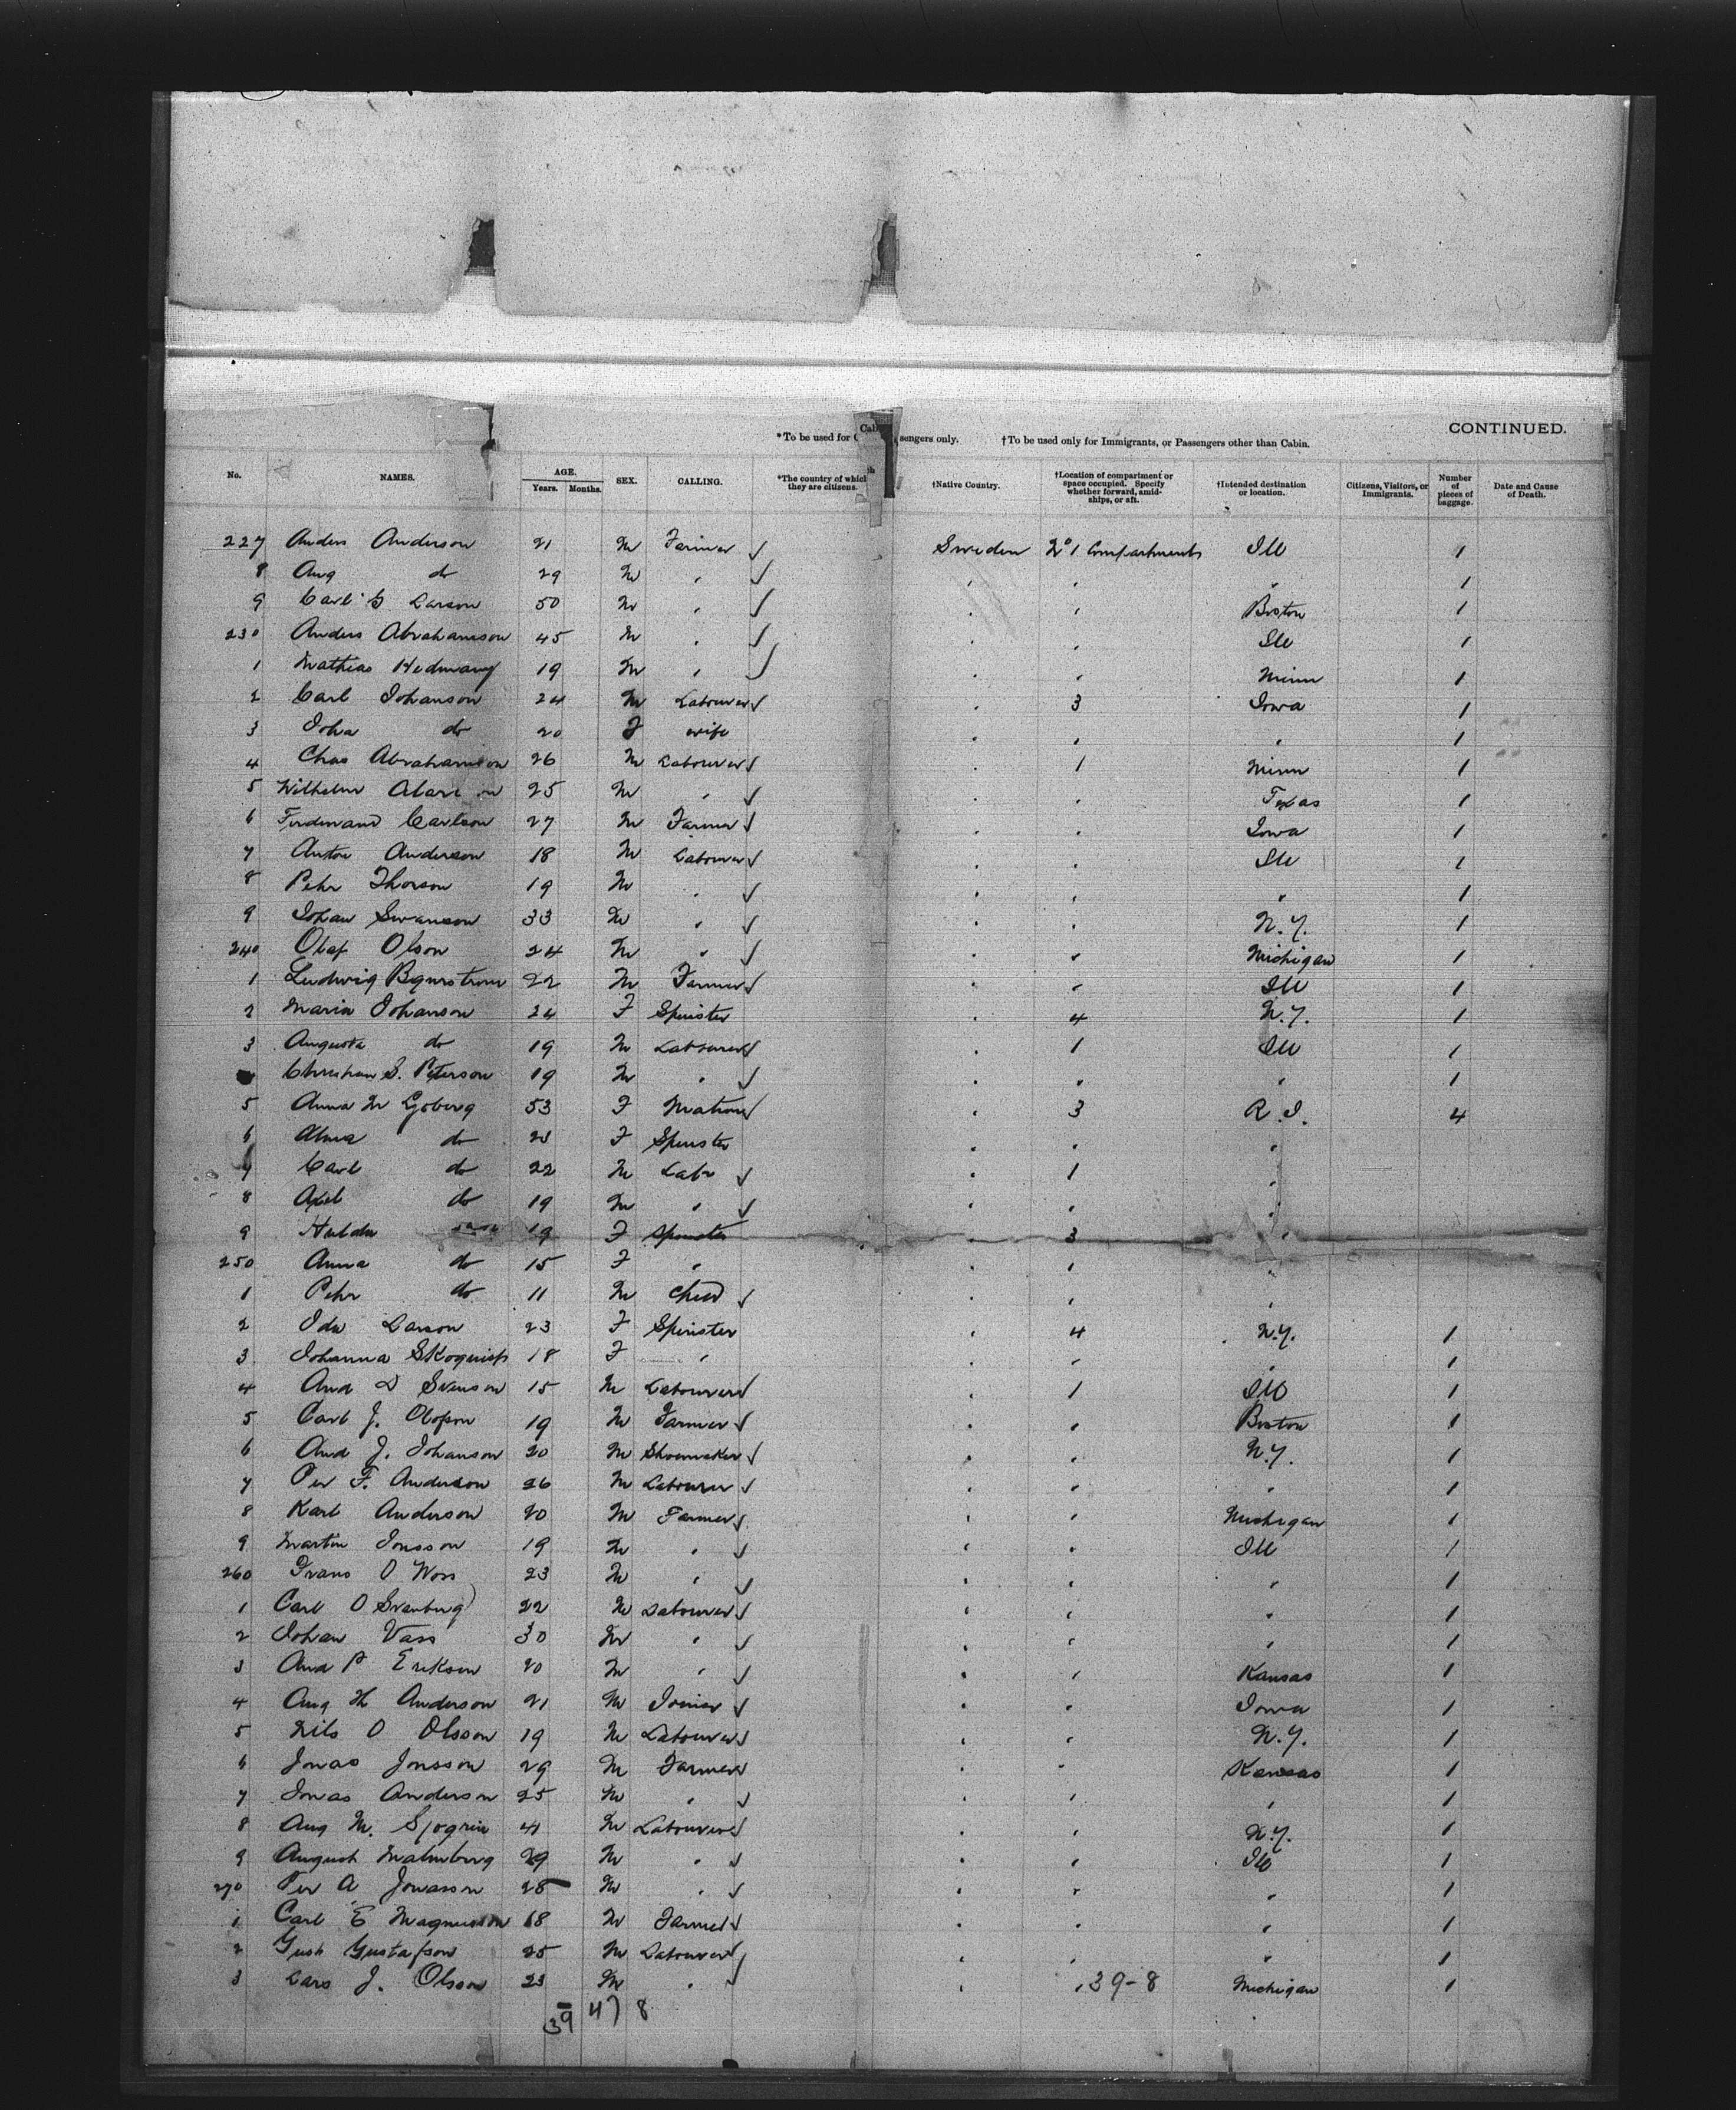 CONTINUED.
*To be used for Cab sengers only. †To be used only for Immigrants, or Passengers other than Cabin.
No. NAMES. AGE. Years. Months. SEX. CALLING. *The country of which they are citizens. †Native Country. †Location of compartment or space occupied. Specify whether forward, amidships, or aft. †Intended destination or location. Citizens, Visitors, or Immigrants. Number of pieces of baggage. Date and Cause of Death.
227 Anders Anderson 21 M Farmer Sweden 1 Compartments Ill 1
8 Aug do 29 M " " " " 1
9 Carl G Larson 50 M " " " Boston 1
230 Anders Abrahamson 45 M " " " Ill 1
1 Mathias 19 M " " " Minn 1
2 Carl Johanson 24 M Labourer " 3 Iowa 1
3 Joha do 20 F wife " " " 1
4 Chas Abrahamson 26 M Labourer " 1 Minn 1
5 Wilhelm 25 M " " " Texas 1
6 Ferdinand Carlson 27 M Farmer " " Iowa 1
7 Anton Anderson 18 M Labourer " " Ill 1
8 Pehr Thorson 19 M " " " " 1
9 Johan Swanson 33 M " " " N.Y. 1
240 Olaf Olson 24 M " " " Michigan 1
1 Ludwig 22 M Farmer " " Ill 1
2 Maria Johanson 24 F Spinster " 4 N.Y. 1
3 Augusta do 19 M Labourer " 1 Ill 1
Christian S. Peterson 19 M " " " " 1
5 Anna M 53 F Matron " 3 R.I. 4
6 Alma do F Spinster " " "
7 Carl do 22 M Labr " 1 "
8 Axel do 19 M " " " "
9 Hulda 19 F Spinster " 3 "
250 Anna do 15 F " " " "
1 Pehr do 11 M Child " " "
2 Ida Larson 23 F Spinster " 4 N.Y. 1
3 Johanna Skoquist 18 F " " " " 1
4 And D Svenson 15 M Labourer " 1 Ill 1
5 Carl J. Olofson 19 M Farmer " " Boston 1
6 And J. Johanson 20 M Shoemaker " " N.Y. 1
7 Per F. Anderson 26 M Labourer " " " 1
8 Karl Anderson 20 M Farmer " " Michigan 1
9 Martin Jonsson 19 M " " " Ill 1
260 Frans O 23 M " " " " 1
1 Carl O Svenburg 22 M Labourer " " " 1
2 Johan Vass 30 M " " " " 1
3 And P Erikson 20 M " " " Kansas 1
4 Aug H Anderson 21 M Joiner " " Iowa 1
5 Nils O Olsson 19 M Labourer " " N.Y. 1
6 Jonas Jonsson 29 M Farmer " " Kansas 1
7 Jonas Anderson 25 M " " " " 1
8 Aug M. Sjogrin 41 M Labourer " " N.Y. 1
9 August Malmberg 29 M " " " Ill 1
270 Per A Jonasson 28 M " " " " 1
1 Carl E Magnusson 18 M Farmer " " " 1
2 Gust Gustafson 25 M Labourer " " " 1
3 Lars J. Olsson 23 M " " " 39-8 Michigan 1
39 47 8